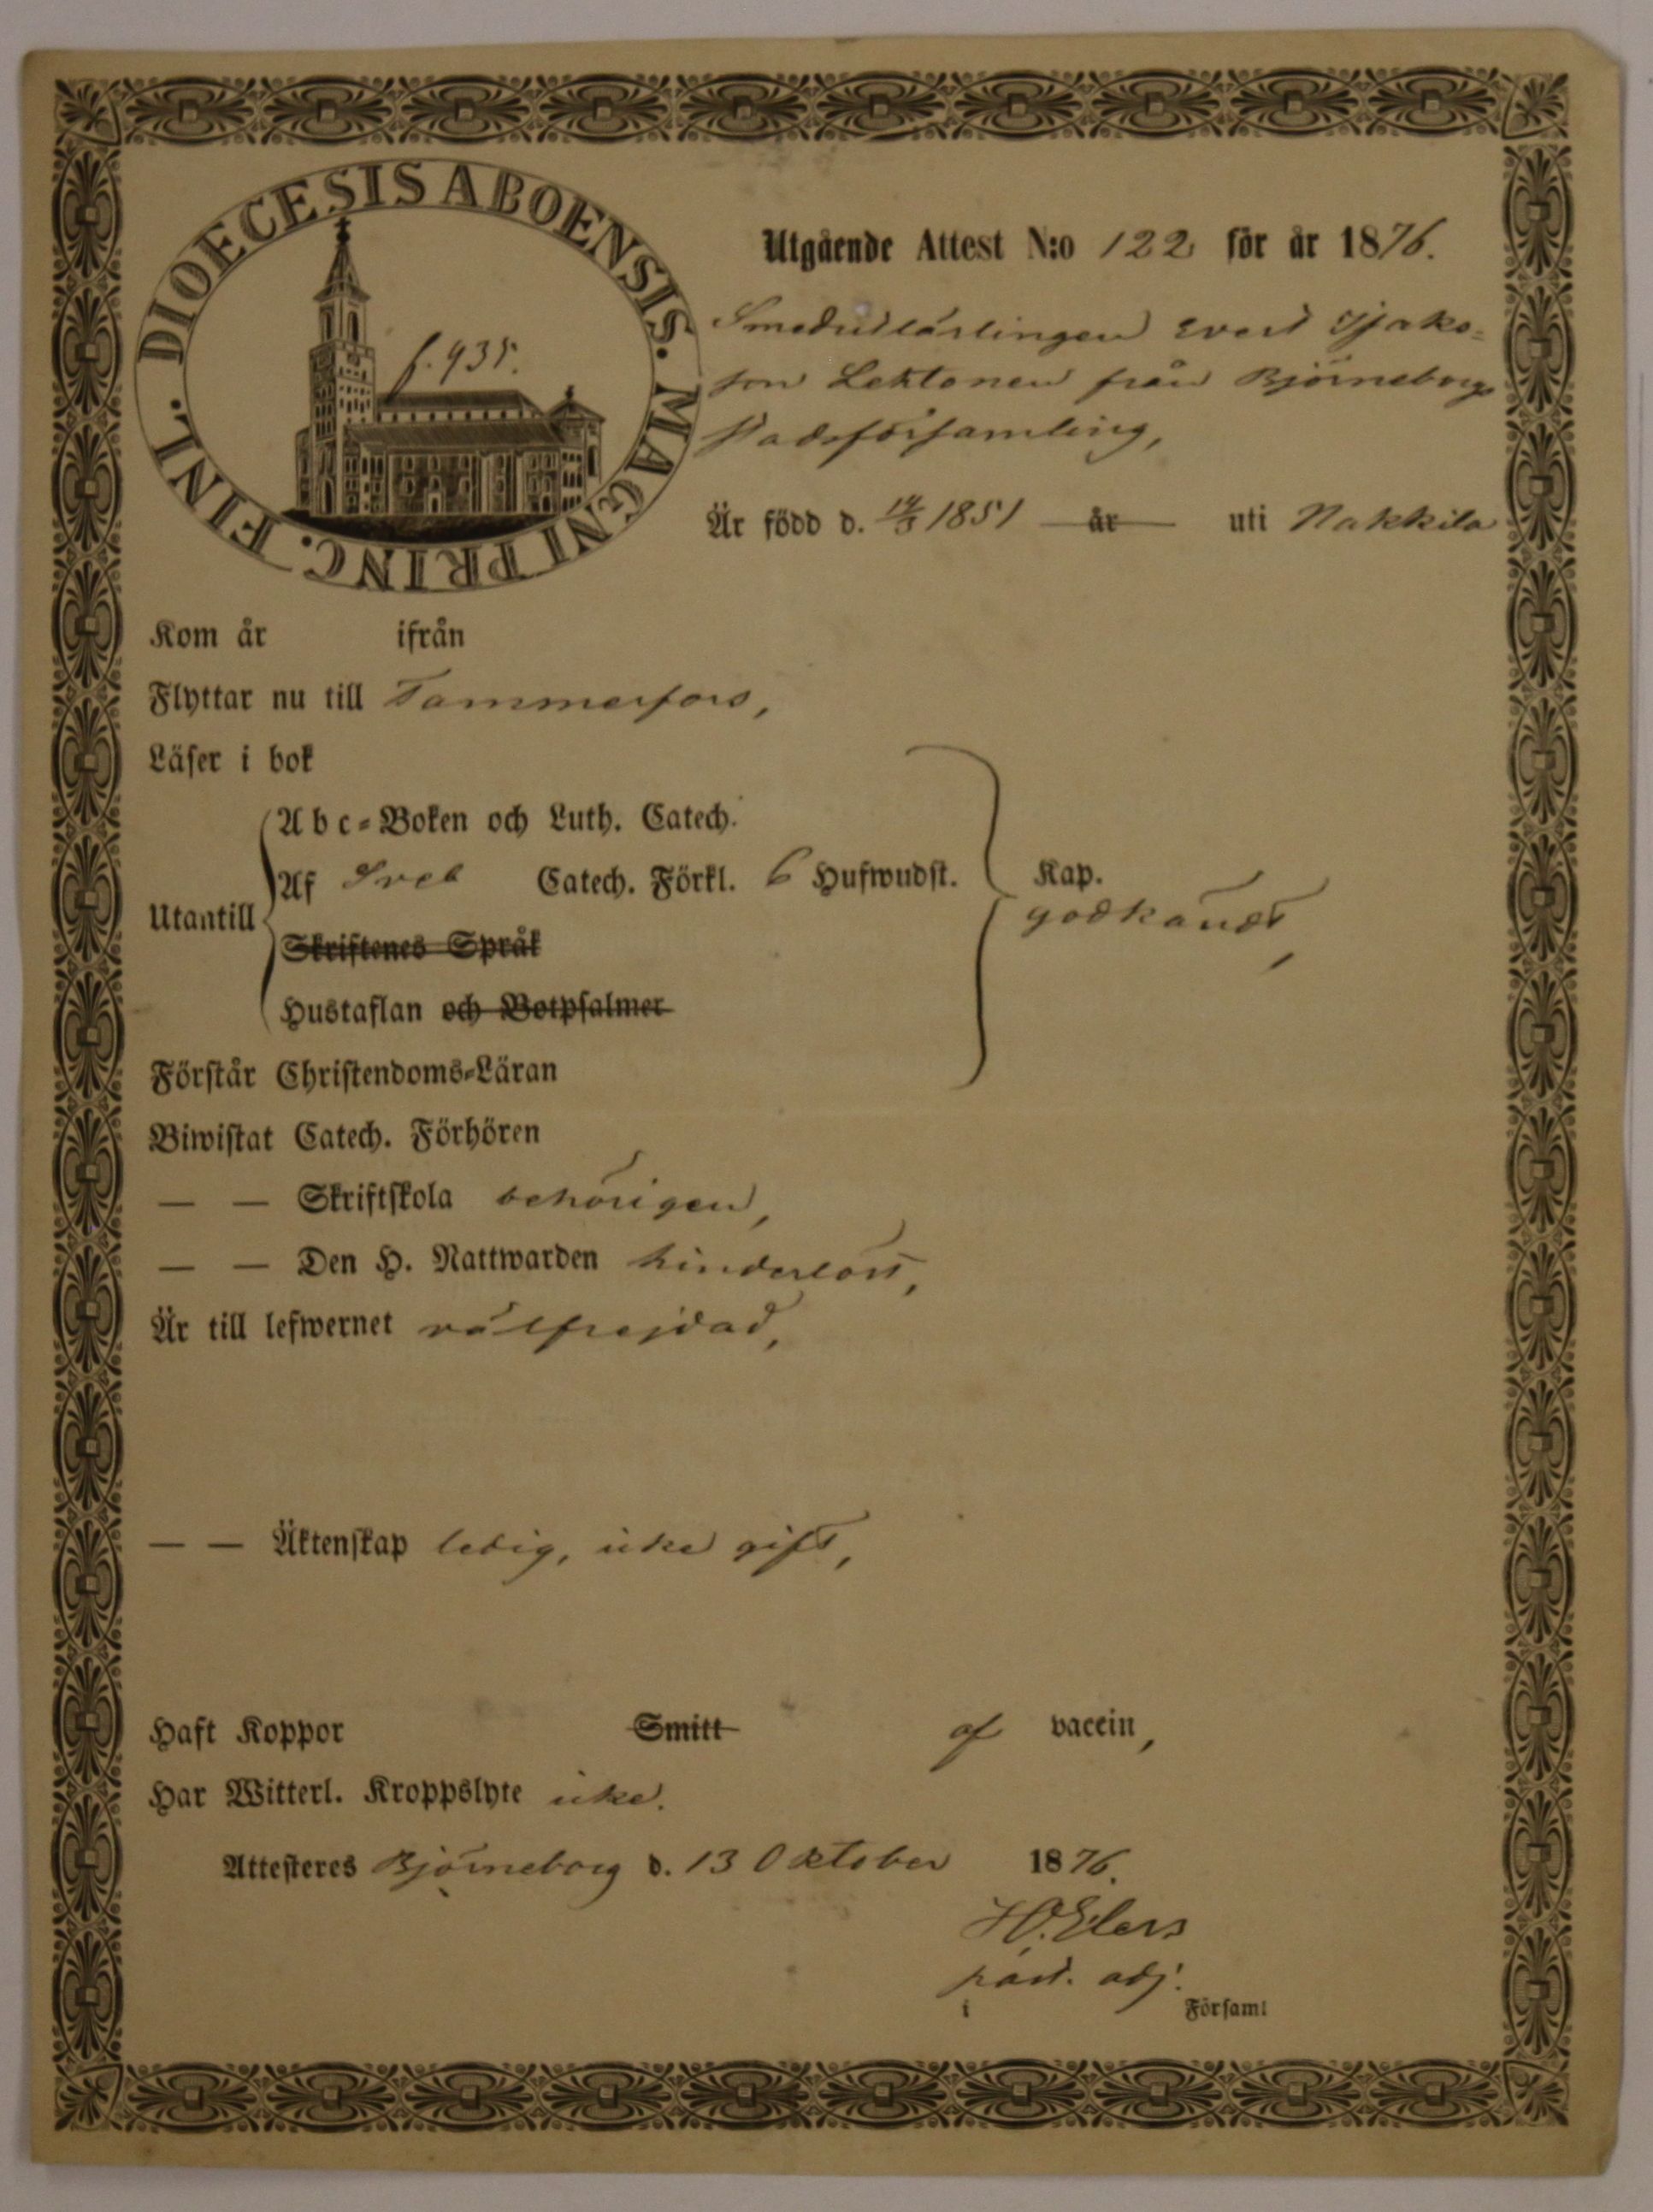 DIOECESIS ABOENSIS. MAGNI PRINC. FINL.
f. 935.
Utgående Attest N:o 122 för år 1876.
Smedslärlingen Evert Isaks-
son Lehtonen från Björneborgs
stadsförsamling,
Är född d. 14/3 1851 år uti Nakkila
Kom år ifrån
Flyttar nu till Tammerfors,
Läser i bok
Abc-Boken och Luth. Catech.
Af Sveb Catech. Förkl. 6 Hufwudst. Kap.
Utantill godkändt,
Skriftenes Språk
Hustaflan och Botpsalmer
Förstår Christendoms-Läran
Biwistat Catech. Förhören
— — Skriftskola behörigen,
— — Den H. Nattwarden hinderlöst,
Är till lefwernet välfrejdad,
— — Äktenskap ledig, icke gift,
Haft Koppor Smitt af vaccin,
Har Witterl. Kroppslyte icke.
Attesteres Björneborg d. 13 Oktober 1876.
H. Elers
past. adj.
i Församl